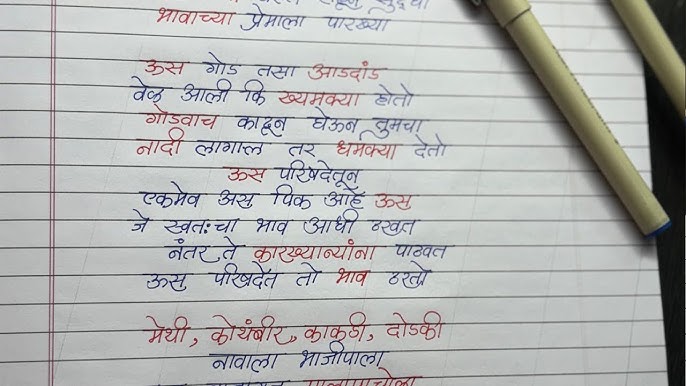 भावाच्या प्रेमाला पारख्या
ऊस गोड तसा आडदांड
वेळ आली कि ख्यमक्या होतो
गोडवाच काढून घेऊन तुमचा
नादी लागाल तर धमक्या देतो
ऊस परिषदेतून
एकमेव अस पिक आहे ऊस
जे स्वतःचा भाव आधी ठरवत
नंतर ते कारख्यान्यांना पाठवत
ऊस परिषदेत तो भाव ठरतो
मेथी, कोथंबीर, काकडी, दोडकी
नावाला भाजीपाला